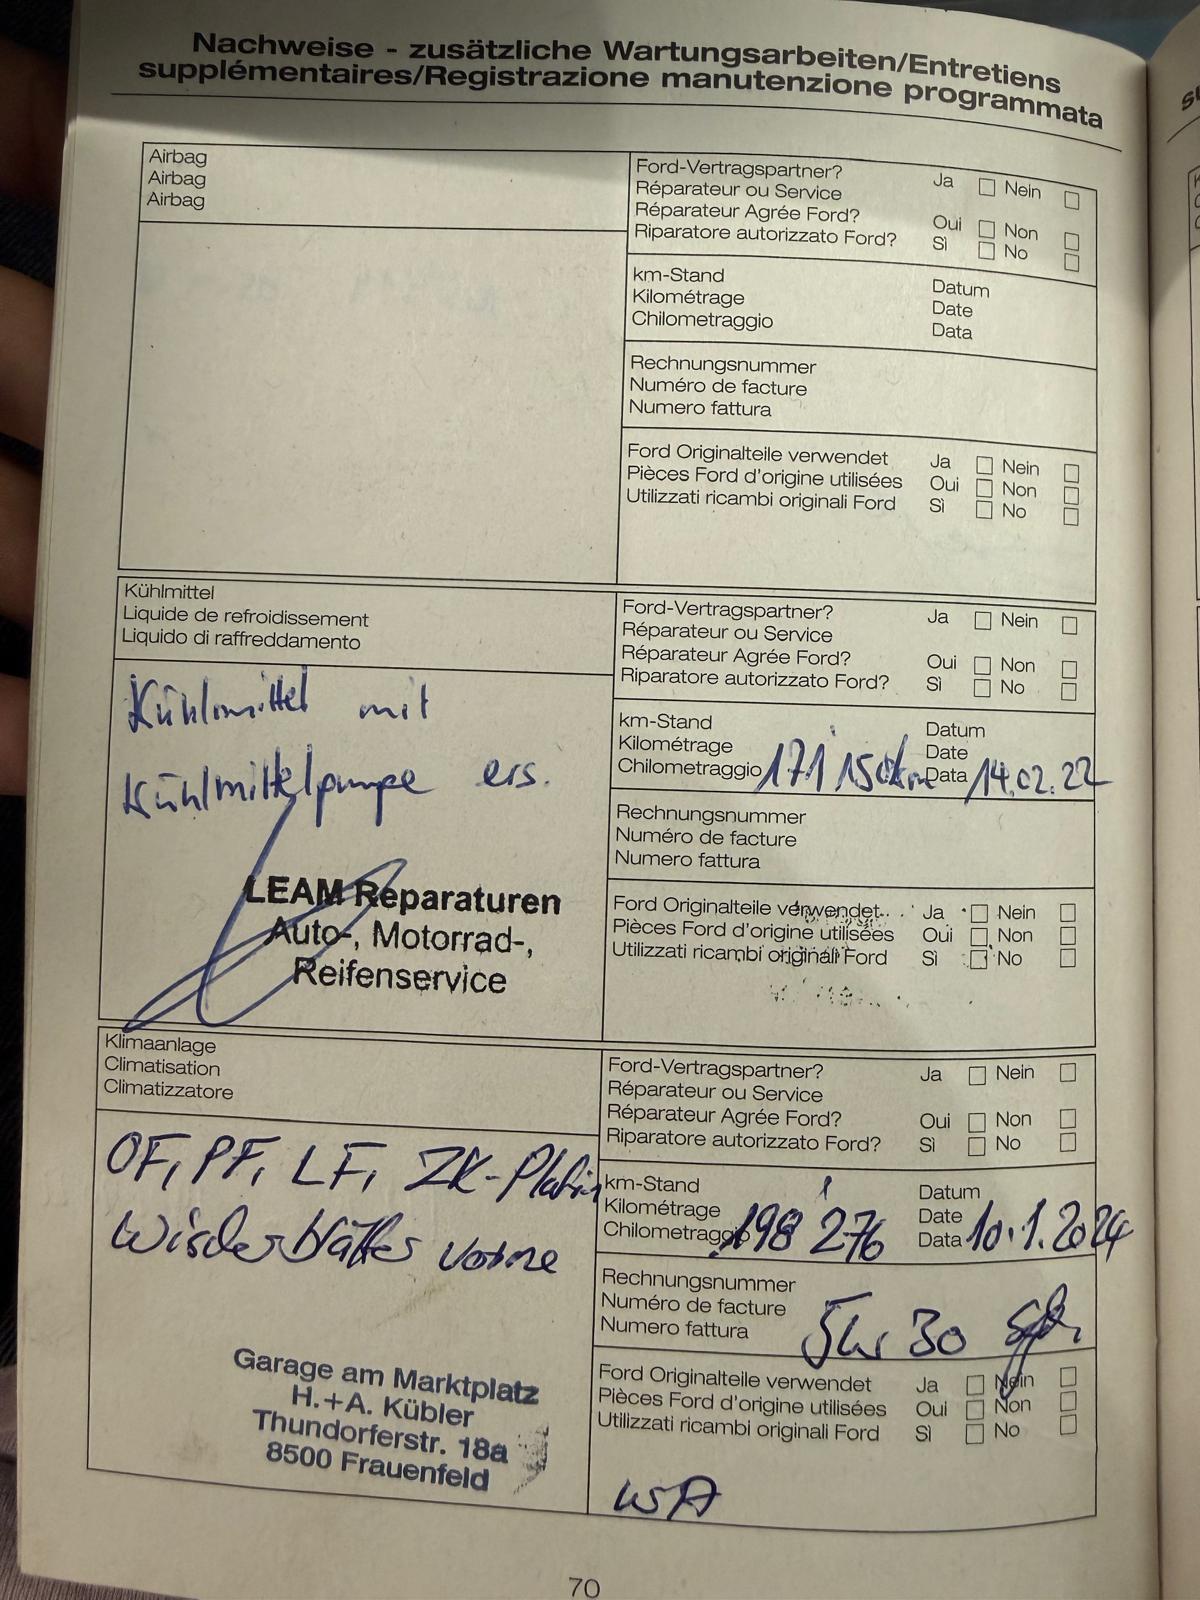 Nachweise - zusätzliche Wartungsarbeiten/Entretiens
supplémentaires/Registrazione manutenzione programmata
Airbag
Airbag
Airbag
Ford-Vertragspartner? Ja Nein
Réparateur ou Service
Réparateur Agrée Ford? Oui Non
Riparatore autorizzato Ford? Sì No
km-Stand Datum
Kilométrage Date
Chilometraggio Data
Rechnungsnummer
Numéro de facture
Numero fattura
Ford Originalteile verwendet Ja Nein
Pièces Ford d'origine utilisées Oui Non
Utilizzati ricambi originali Ford Sì No
Kühlmittel
Liquide de refroidissement
Liquido di raffreddamento
Kühlmittel mit
Kühlmittelpumpe ers.
LEAM Reparaturen
Auto-, Motorrad-,
Reifenservice
Ford-Vertragspartner? Ja Nein
Réparateur ou Service
Réparateur Agrée Ford? Oui Non
Riparatore autorizzato Ford? Sì No
km-Stand Datum
Kilométrage Date
Chilometraggio 171'150km Data 14.02.22
Rechnungsnummer
Numéro de facture
Numero fattura
Ford Originalteile verwendet Ja Nein
Pièces Ford d'origine utilisées Oui Non
Utilizzati ricambi originali Ford Sì No
Klimaanlage
Climatisation
Climatizzatore
OF, PF, LF, ZK-Platin
Wischerblätter vorne
Garage am Marktplatz
H.+A. Kübler
Thundorferstr. 18a
8500 Frauenfeld
Ford-Vertragspartner? Ja Nein
Réparateur ou Service
Réparateur Agrée Ford? Oui Non
Riparatore autorizzato Ford? Sì No
km-Stand Datum
Kilométrage Date
Chilometraggio 198'276 Data 10.1.2024
Rechnungsnummer
Numéro de facture
Numero fattura 30
Ford Originalteile verwendet Ja Nein
Pièces Ford d'origine utilisées Oui Non
Utilizzati ricambi originali Ford Sì No
WSA
70